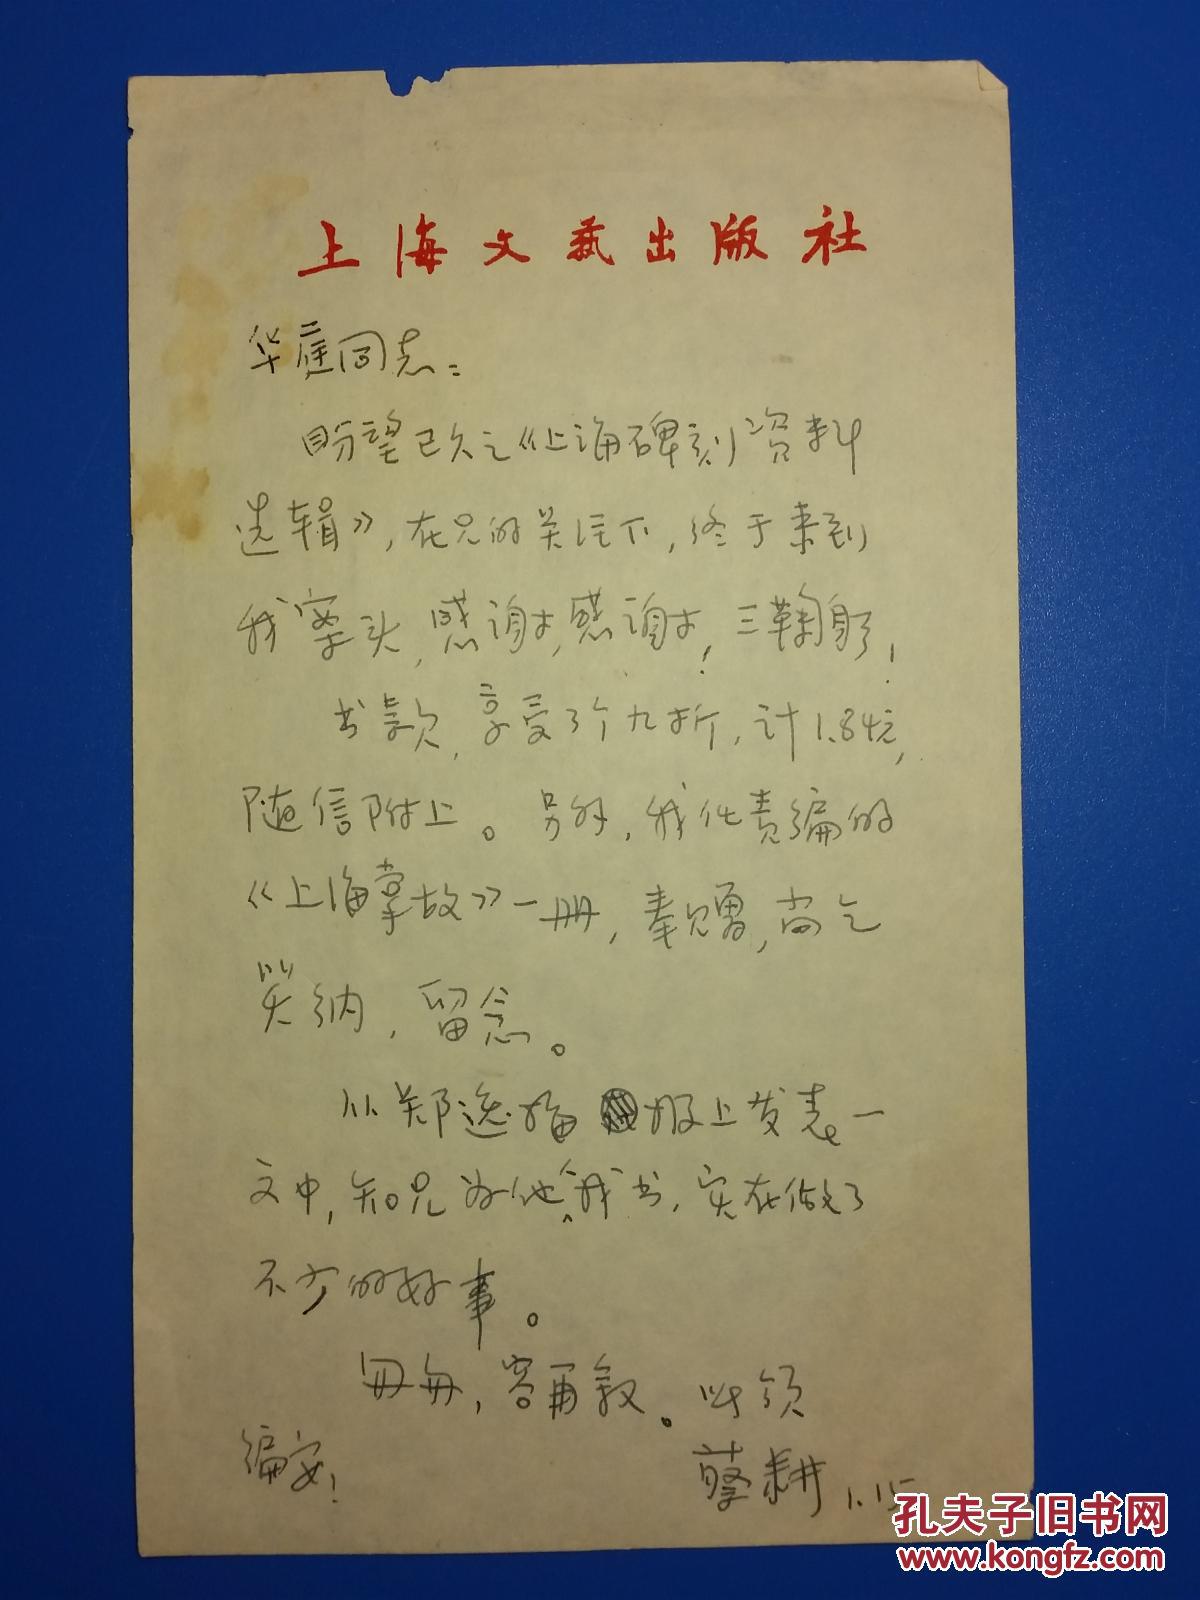 上海文艺出版社
华庭同志：
盼望已久之《上海碑刻资料
选辑》，在兄的关注下，终于来到
我案头，感谢，感谢！三鞠躬！
书款，享受了个九折，计1.84元，
随信附上。另外，我化责编的
《上海掌故》一册，奉赠，尚乞
笑纳，留念。
从郑逸梅报上发表一
文中，知兄为他找书，实在做了
不少的好事。
匆匆，容再叙。此颂
编安！
蔡耕 1.15
孔夫子旧书网
www.kongfz.com